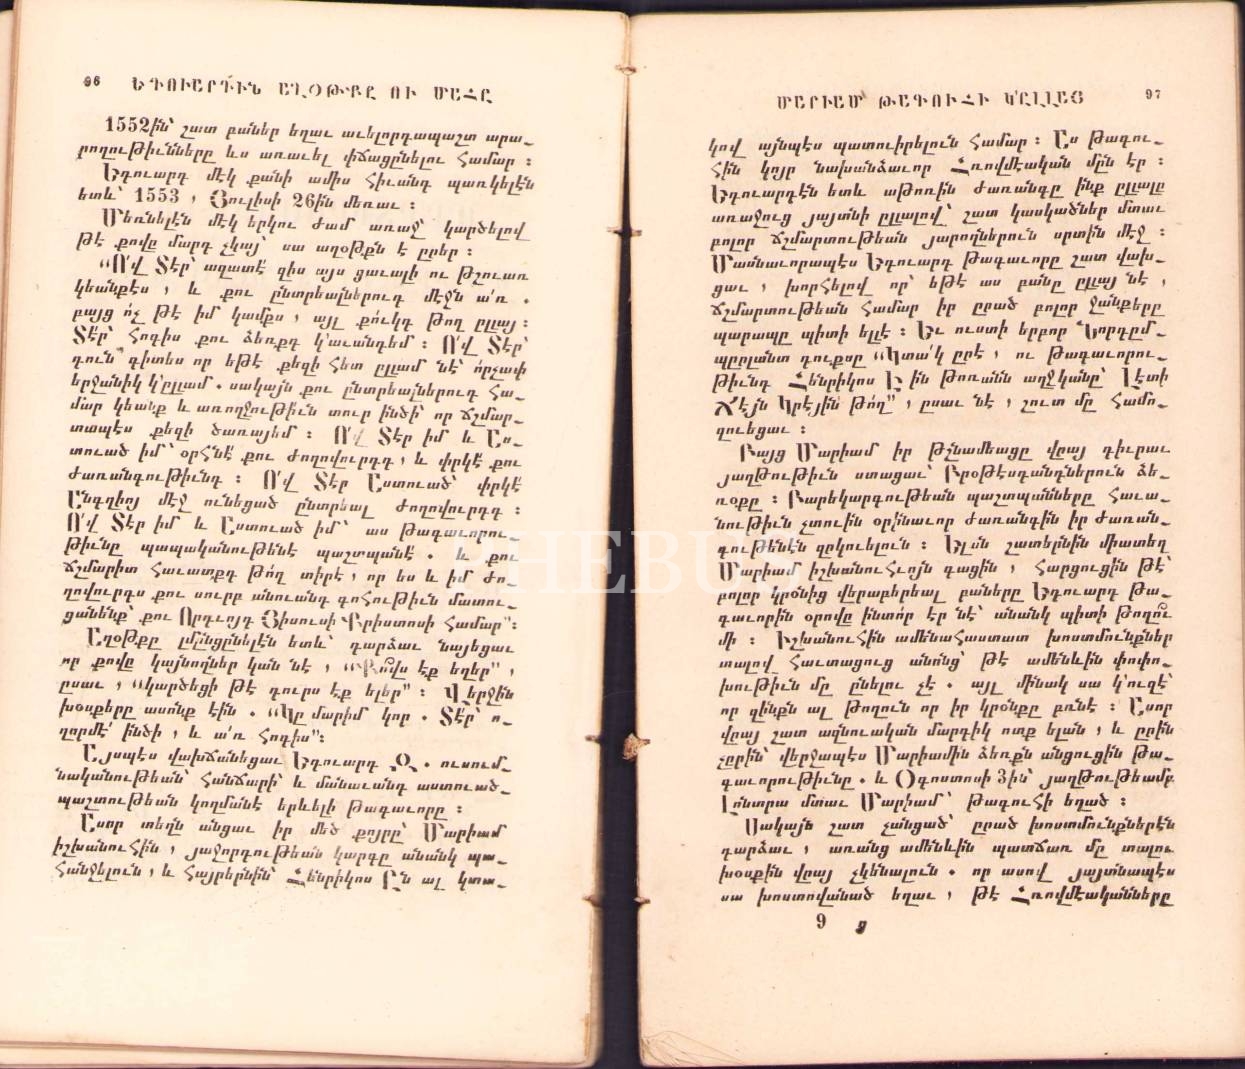 96 ԵԴՈՒԱՐԴԻՆ ԱՂՕԹՔԸ ՈՒ ՄԱՀԸ
1552ին՝ շատ բաներ եղաւ աւելորդապաշտ արա-
րողութիւնները ևս առաւել փճացընելու համար ։
Եդուարդ մէկ քանի ամիս հիւանդ պառկելէն
ետև՝ 1553 , Յուլիսի 26ին մեռաւ ։
Մեռնելէն մէկ երկու ժամ առաջ՝ կարծելով
թէ քովը մարդ չկայ՝ սա աղօթքն է ըրեր ։
“Ո՛վ Տէր՝ ազատէ՛ զիս այս ցաւալի ու թշուառ
կեանքէս , և քու ընտրեալներուդ մէջն ա՛ռ .
բայց ո՛չ թէ իմ կամքս , այլ քո՛ւկդ թող ըլլայ ։
Տէ՛ր՝ հոգիս քու ձեռքդ կ՚աւանդեմ ։ Ո՛վ Տէր՝
դուն գիտես որ եթէ քեզի հետ ըլլամ նէ՝ ո՛րչափ
երջանիկ կ՚ըլլամ . սակայն քու ընտրեալներուդ հա-
մար կեանք և առողջութիւն տուր ինծի՝ որ ճշմար-
տապէս քեզի ծառայեմ ։ Ո՛վ Տէր իմ և Աս-
տուած իմ՝ օրհնէ՛ քու ժողովուրդդ , և փրկէ՛ քու
ժառանգութիւնդ ։ Ո՛վ Տէր Աստուած՝ փրկէ՛
Ընդղիոյ մէջ ունեցած ընտրեալ ժողովուրդդ ։
Ո՛վ Տէր իմ և Աստուած իմ՝ աս թագաւորու-
թիւնը պապականութենէ պաշտպանէ՛ . և քու
ճշմարիտ հաւատքդ թո՛ղ տիրէ , որ ես և իմ ժո-
ղովուրդս քու սուրբ անուանդ գոհութիւն մատու-
ցանենք՝ քու Որդւոյդ Յիսուսի Քրիստոսի համար”։
Աղօթքը լմընցընելէն ետև՝ դարձաւ նայեցաւ
որ քովը կայնողներ կան նէ , “Քո՞վս էք եղեր” ,
ըսաւ , “կարծեցի թէ դուրս էք ելեր” ։ Վերջին
խօսքերը ասոնք էին . “Կը մարիմ կոր . Տէ՛ր՝ ո-
ղորմէ՛ ինծի , և ա՛ռ հոգիս”։
Այսպէս վախճանեցաւ Եդուարդ Զ . ուսում-
նականութեան՝ հանճարի՝ և մանաւանդ աստուած-
պաշտութեան կողմանէ երևելի թագաւորը ։
Ասոր տեղն անցաւ իր մեծ քոյրը՝ Մարիամ
իշխանուհին , յաջորդութեան կարգը անանկ պա-
հանջելուն , և հայրերնին՝ Հենրիկոս Ըն ալ կտա-
ՄԱՐԻԱՄ ԹԱԳՈՒՀԻ Կ՚ԸԼԼԱՅ 97
կով այնպէս պատուիրելուն համար ։ Աս թագու-
հին կոյր նախանձաւոր Հռովմէական մըն էր ։
Եդուարդէն ետև աթոռին ժառանգը ինք ըլլալը
առաջուց յայտնի ըլլալով՝ շատ կասկածներ մտաւ
բոլոր ճշմարտութեան յարողներուն սրտին մէջ ։
Մասնաւորապէս Եդուարդ թագաւորը շատ վախ-
ցաւ , խորհելով որ՝ եթէ աս բանը ըլլայ նէ ,
ճշմարտութեան համար իր ըրած բոլոր ջանքերը
պարապը պիտի ելլէ ։ Եւ ուստի երբոր Նորդըմ-
պըրլանտ դուքսը “Կտա՛կ ըրէ , ու թագաւորու-
թիւնդ Հենրիկոս Է ին թոռանն աղջկանը՝ Լէտի
Ճէյն Կրէյին թո՛ղ” , ըսաւ նէ , շուտ մը համո-
զուեցաւ ։
Բայց Մարիամ իր թշնամեացը վրայ դիւրաւ
յաղթութիւն ստացաւ՝ Բրօթէսդանդներուն ձե-
ռօքը ։ Բարեկարգութեան պաշտպանները հաւա-
նութիւն չտուին օրինաւոր ժառանգին իր ժառան-
գութենէն զրկուելուն ։ Ելան շատերնին միատեղ
Մարիամ իշխանուհւոյն գացին , հարցուցին թէ՝
բոլոր կրօնից վերաբերեալ բաները Եդուարդ թա-
գաւորին օրովը ինտոր էր նէ՝ անանկ պիտի թողո՞ւ
մի ։ Իշխանուհին ամենահաստատ խոստմունքներ
տալով հաւատացուց անոնց՝ թէ ամենևին փոփո-
խութիւն մը ընելու չէ . այլ մինակ սա կ՚ուզէ՝
որ զինքն ալ թողուն որ իր կրօնքը բռնէ ։ Ասոր
վրայ շատ ազնուական մարդիկ ոտք ելան , և ըրին
չըրին՝ վերջապէս Մարիամին ձեռքն անցուցին թա-
գաւորութիւնը . և Օգոստոսի 3ին՝ յաղթութեամբ
Լոնտրա մտաւ Մարիամ՝ թագուհի եղած ։
Սակայն շատ չանցած՝ ըրած խոստմունքներէն
դարձաւ , առանց ամենևին պատճառ մը տալու
խօսքին վրայ չկենալուն . որ ասով յայտնապէս
սա խոստովանած եղաւ , թէ Հռովմէականները
9 ց
PHEBUS